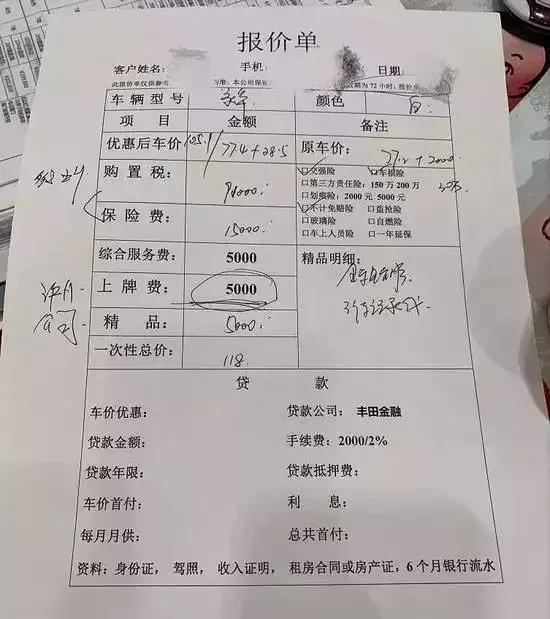 报价单
客户姓名: 手机: 日期:
此报价单仅供参考 为准,本公司保留 效期为 72 小时,
车辆型号 颜色 白
项 目 金额 备注
优惠后车价 105.1 / 77.4+28.5 原车价: +2000
购置税: 94000
□交强险 □车损险
□第三方责任险:150 万 200 万
□划痕险:2000 元 5000 元
保险费: 15000
□不计免赔险 □盗抢险
□玻璃险 □自燃险
□车上人员险 □一年延保
综合服务费: 5000 精品明细:
上牌费: 5000
公司
精 品: 5000
行车记录仪
一次性总价: 118
贷 款
车价优惠: 贷款公司: 丰田金融
贷款金额: 手续费:2000/2%
贷款年限: 贷款抵押费:
车价首付: 利 息:
每月月供: 总共首付:
资料:身份证, 驾照, 收入证明, 租房合同或房产证,6 个月银行流水